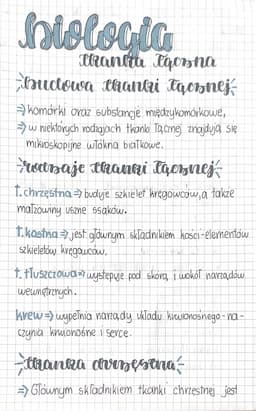 biologia
tkanka łączna
budowa tkanki łącznej
⇒ komórki oraz substancje międzykomórkowe,
⇒ w niektórych rodzajach tkanki łącznej znajdują się
mikroskopijne włókna białkowe.
rodzaje tkanki łącznej
t. chrzęstna ⇒ buduje szkielet kręgowców, a także
małżowiny uszne ssaków.
t. kostna ⇒ jest głównym składnikiem kości - elementów
szkieletów kręgowców.
t. tłuszczowa ⇒ występuje pod skórą i wokół narządów
wewnętrznych.
krew ⇒ wypełnia narządy układu krwionośnego - na-
czynia krwionośne i serce.
tkanka chrzęstna
⇒ Głównym składnikiem tkanki chrzęstnej jest